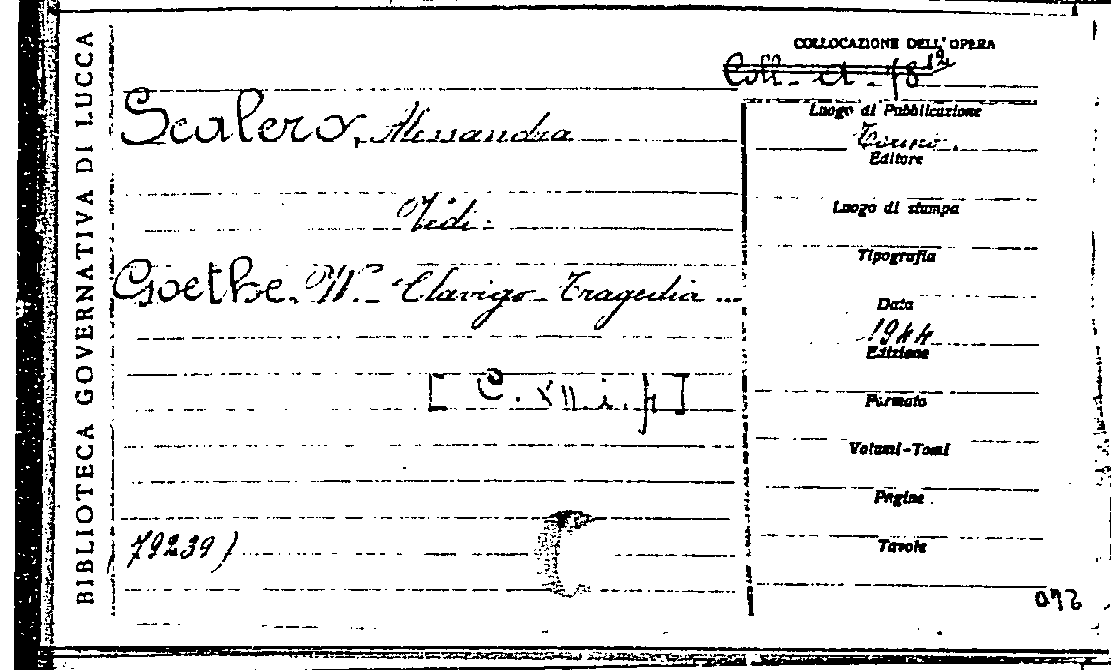 BIBLIOTECA GOVERNATIVA DI LUCCA
COLLOCAZIONE DELL'OPERA
Coll. et. 78 12
Scalero, Alessandra
Vidi:
Goethe. W. Clavigo - Tragedia ...
[C. XII. i. f]
79239)
Luogo di Pubblicazione
Torino.
Editore
Luogo di stampa
Tipografia
Data
1944
Edizione
Formato
Volumi-Tomi
Pagine
Tavole